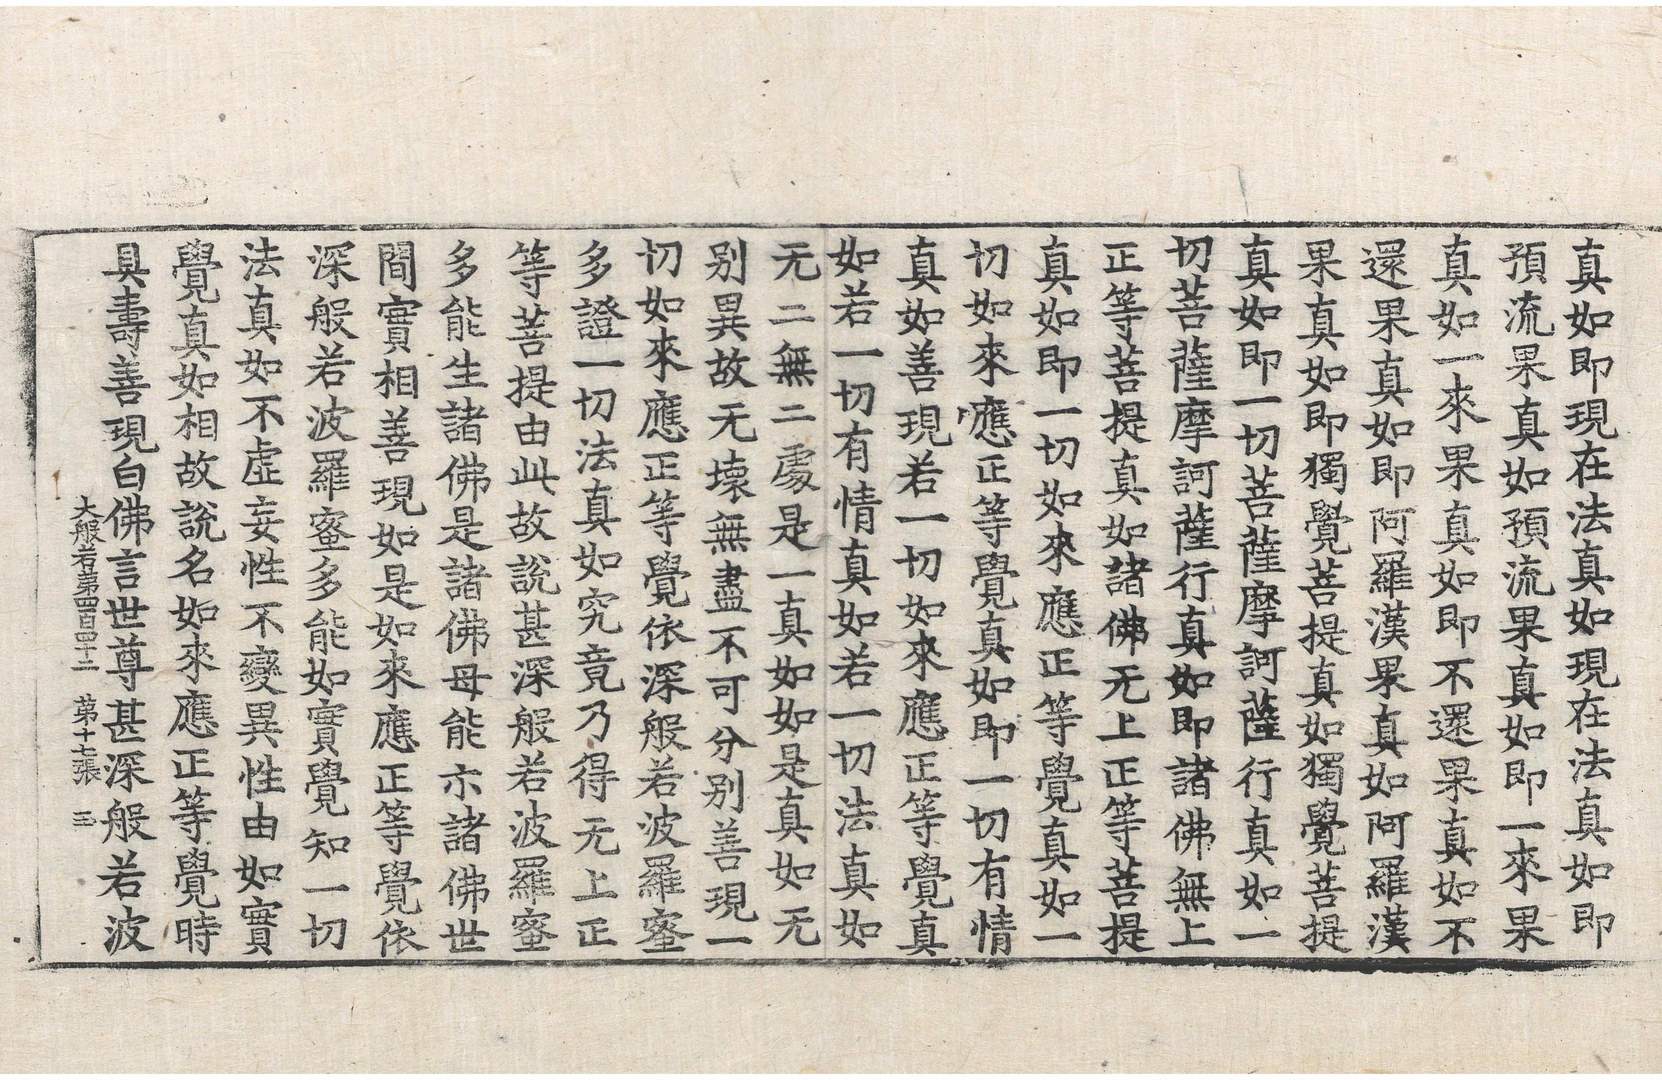 真如即現在法真如現在法真如即
預流果真如預流果真如即一來果
真如一來果真如即不還果真如不
還果真如即阿羅漢果真如阿羅漢
果真如即獨覺菩提真如獨覺菩提
真如即一切菩薩摩訶薩行真如一
切菩薩摩訶薩行真如即諸佛無上
正等菩提真如諸佛无上正等菩提
真如即一切如來應正等覺真如一
切如來應正等覺真如即一切有情
真如善現若一切如來應正等覺真
如若一切有情真如若一切法真如
无二無二處是一真如如是真如无
别異故无壞無盡不可分别善現一
切如來應正等覺依深般若波羅蜜
多證一切法真如究竟乃得无上正
等菩提由此故說甚深般若波羅蜜
多能生諸佛是諸佛母能示諸佛世
間實相善現如是如來應正等覺依
深般若波羅蜜多能如實覺知一切
法真如不虛妄性不變異性由如實
覺真如相故說名如來應正等覺時
具壽善現白佛言世尊甚深般若波
大般若第四百四十二 第十七張 三